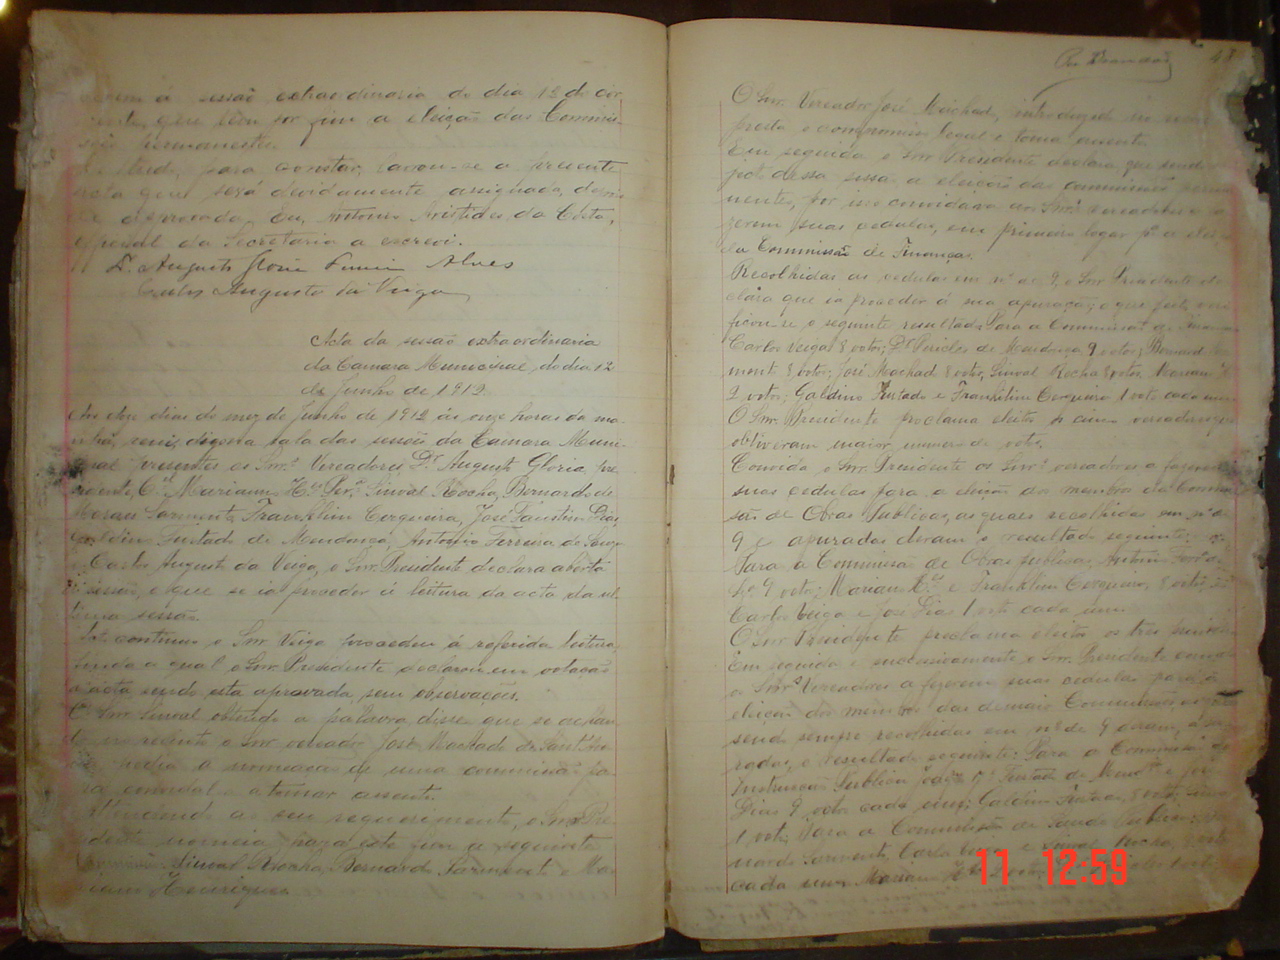 sessão extraordinaria do dia 12 do cor
rente, que tem por fim a eleição das Commis-
sões permanentes.
E tudo, para constar, lavou-se a presente
acta que será devidamente assignada, depois
de approvada. Eu, Antonio Aristides da Costa,
official da Secretaria a escrevi.
Dr. Augusto Gloria Alves
Carlos Augusto da Veiga
Acta da sessão extraordinaria
da Camara Municipal, do dia 12
de Junho de 1912
dias do mez de Junho de 1912 ás onze horas da ma-
nhã, sala das sessões da Camara Muni-
cipal presentes os Snr.s Vereadores, Dr. Augusto Gloria, pre
sidente, C.el Marianno Sinval Rocha, Bernardo de
Moraes Sarmento, Franklin Cerqueira, José Faustino Dias,
Galdino Furtado de Mendonça, Antonio Ferreira de Souza
e Carlos Augusto da Veiga, o Snr. Presidente declara aberta
a sessão, e que se ia proceder á leitura da acta da ul-
tima sessão.
continuo o Snr Veiga procedeu á referida leitura
finda a qual o Snr. Presidente declarou em votação
a acta sendo esta aprovada, sem observações.
O Snr Sinval obtendo a palavra, disse que se achan-
do no recinto o Snr. vereador José Machado de Sant'An
na, pedia a nomeação de uma commissão pa-
ra convidal-o a tomar assento.
Attendendo ao seu requerimento, o Snr. Pre-
sidente nomeia para este fim a seguinte
Commissão: Sinval Rocha, Bernardo Sarmento e Ma-
rianno Henriques.
48
O Snr. Vereador José Machado, introduzido no recinto
presta o compromisso legal e toma assento.
Em seguida o Snr. Presidente declara que sendo
dessa sessão a eleição das commissões perma
nentes, por isso convidava aos Snr.s vereadores a fa
zerem suas cedulas, em primeiro logar p.a a elei
da Commissão de Finanças.
Recolhidas as cedulas em n.º de 9, o Snr. Presidente de
clara que ia proceder á sua apuração; o que feito veri
ficou-se o seguinte resultado: Para a Commissão de Finanças
Carlos Veiga 8 votos; Dr Pericles de Mendonça 9 votos; Bernardo Sar
mento 8 votos; José Machado 8 votos, Sinval Rocha 8 votos, Marianno
2 votos; Galdino Furtado e Franklin Cerqueira 1 voto cada um.
O Snr. Presidente proclama eleitos os cinco vereadores que
obtiveram maior numero de votos.
Convida o Snr. Presidente os Snr.s vereadores a fazerem
suas cedulas para a eleição dos membros da Commis
são de Obras Publicas, as quaes recolhidas em n.º de
9 e apuradas deram o resultado seguinte:
Para a Commissão de Obras publicas: Antonio
9 votos; Marianno e Franklin Cerqueira, 8 votos,
Carlos Veiga e José Dias 1 voto cada um.
O Snr Presidente proclama eleitos os tres
Em seguida e successivamente o Snr. Presidente convida
os Snr.s Vereadores a fazerem suas cedulas para a
eleição dos membros das demais Commissões,
sendo sempre recolhidas em n.º de 9 e apu
radas, o resultado seguinte: Para a Commissão de
Instrucção Publica Furtado de Mend.ça e José
Dias 9 votos cada um; Galdino Furtado, 8 votos,
1 voto. Para a Commissão de Saude Publica: Ber
nardo Sarmento, Carlos Veiga e Sinval Rocha,
cada um, Marianno
11 12:59